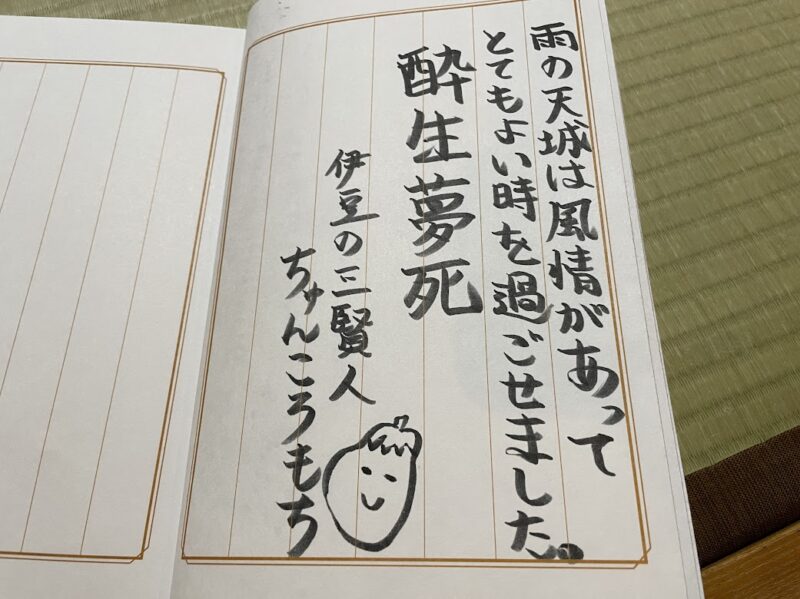 雨の天城は風情があって
とてもよい時を過ごせました。
酔生夢死
伊豆の三賢人
ちゅんころもち